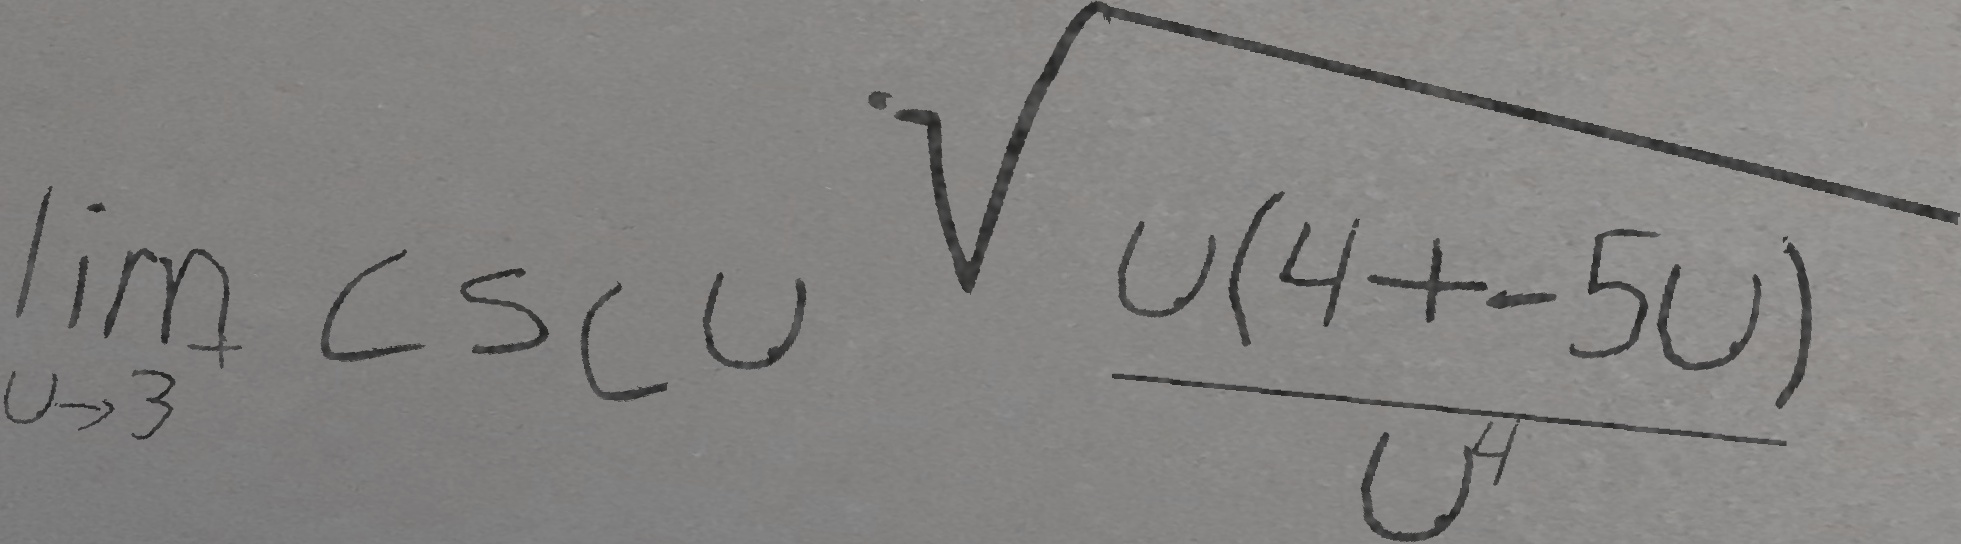 \lim_{u \to 3^+} \csc u \cdot \sqrt{\frac{u(4+-5u)}{u^4}}